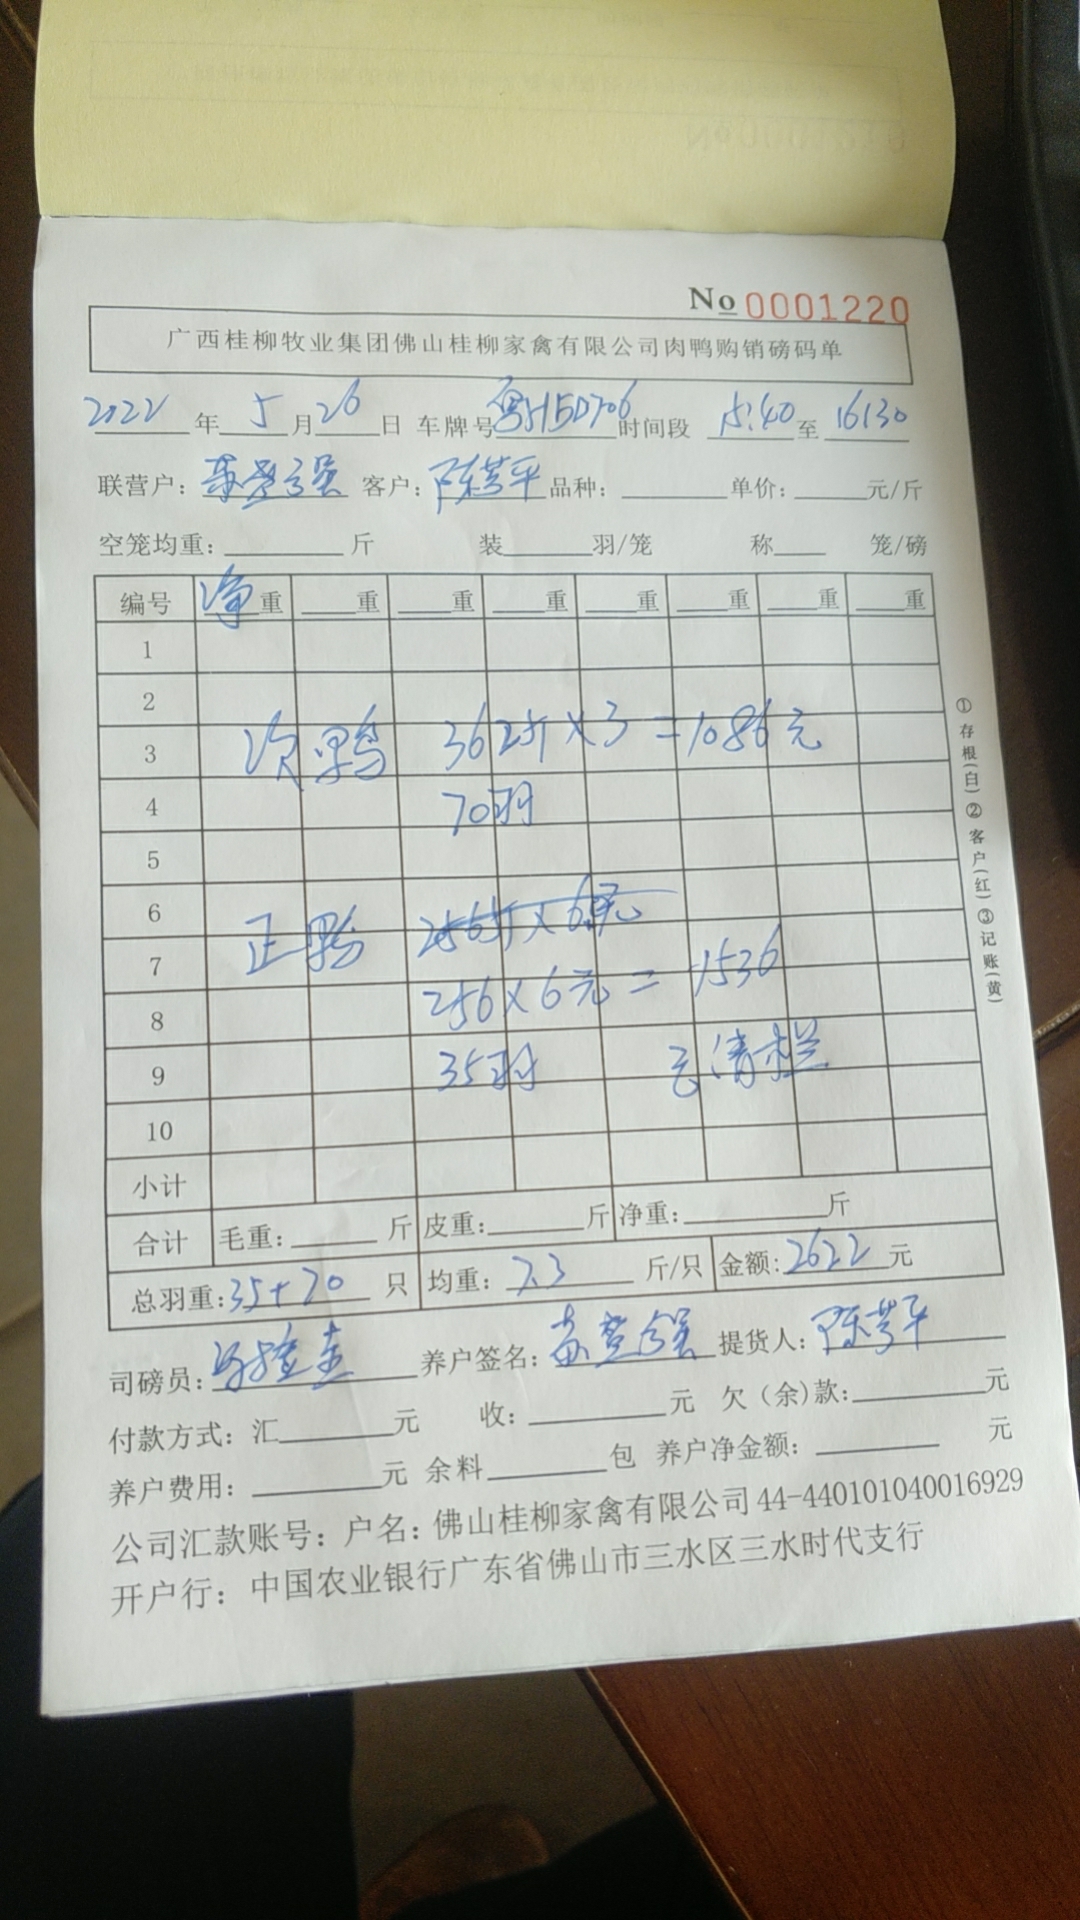 No 0001220
广西桂柳牧业集团佛山桂柳家禽有限公司肉鸭购销磅码单
2022年5月26日 车牌号粤H5D706时间段 15:40至16:30
联营户: 客户: 陈芳平 品种: 单价: 元/斤
空笼均重: 斤 装 羽/笼 称 笼/磅
编号 净重 重 重 重 重 重 重 重
1
2
3 次鸭 362斤×3=1086元
4 70羽
5
6 256斤×6元
7 正鸭
8 256×6元=1536
9 35羽 已清栏
10
小计
合计 毛重: 斤 皮重: 斤 净重: 斤
总羽重:35+70只 均重:7.3斤/只 金额:2622元
司磅员: 养户签名: 提货人:陈芳平
付款方式:汇 元 收: 元 欠(余)款: 元
养户费用: 元 余料 包 养户净金额: 元
公司汇款账号:户名:佛山桂柳家禽有限公司44-440101040016929
开户行:中国农业银行广东省佛山市三水区三水时代支行
①存根(白)②客户(红)③记账(黄)